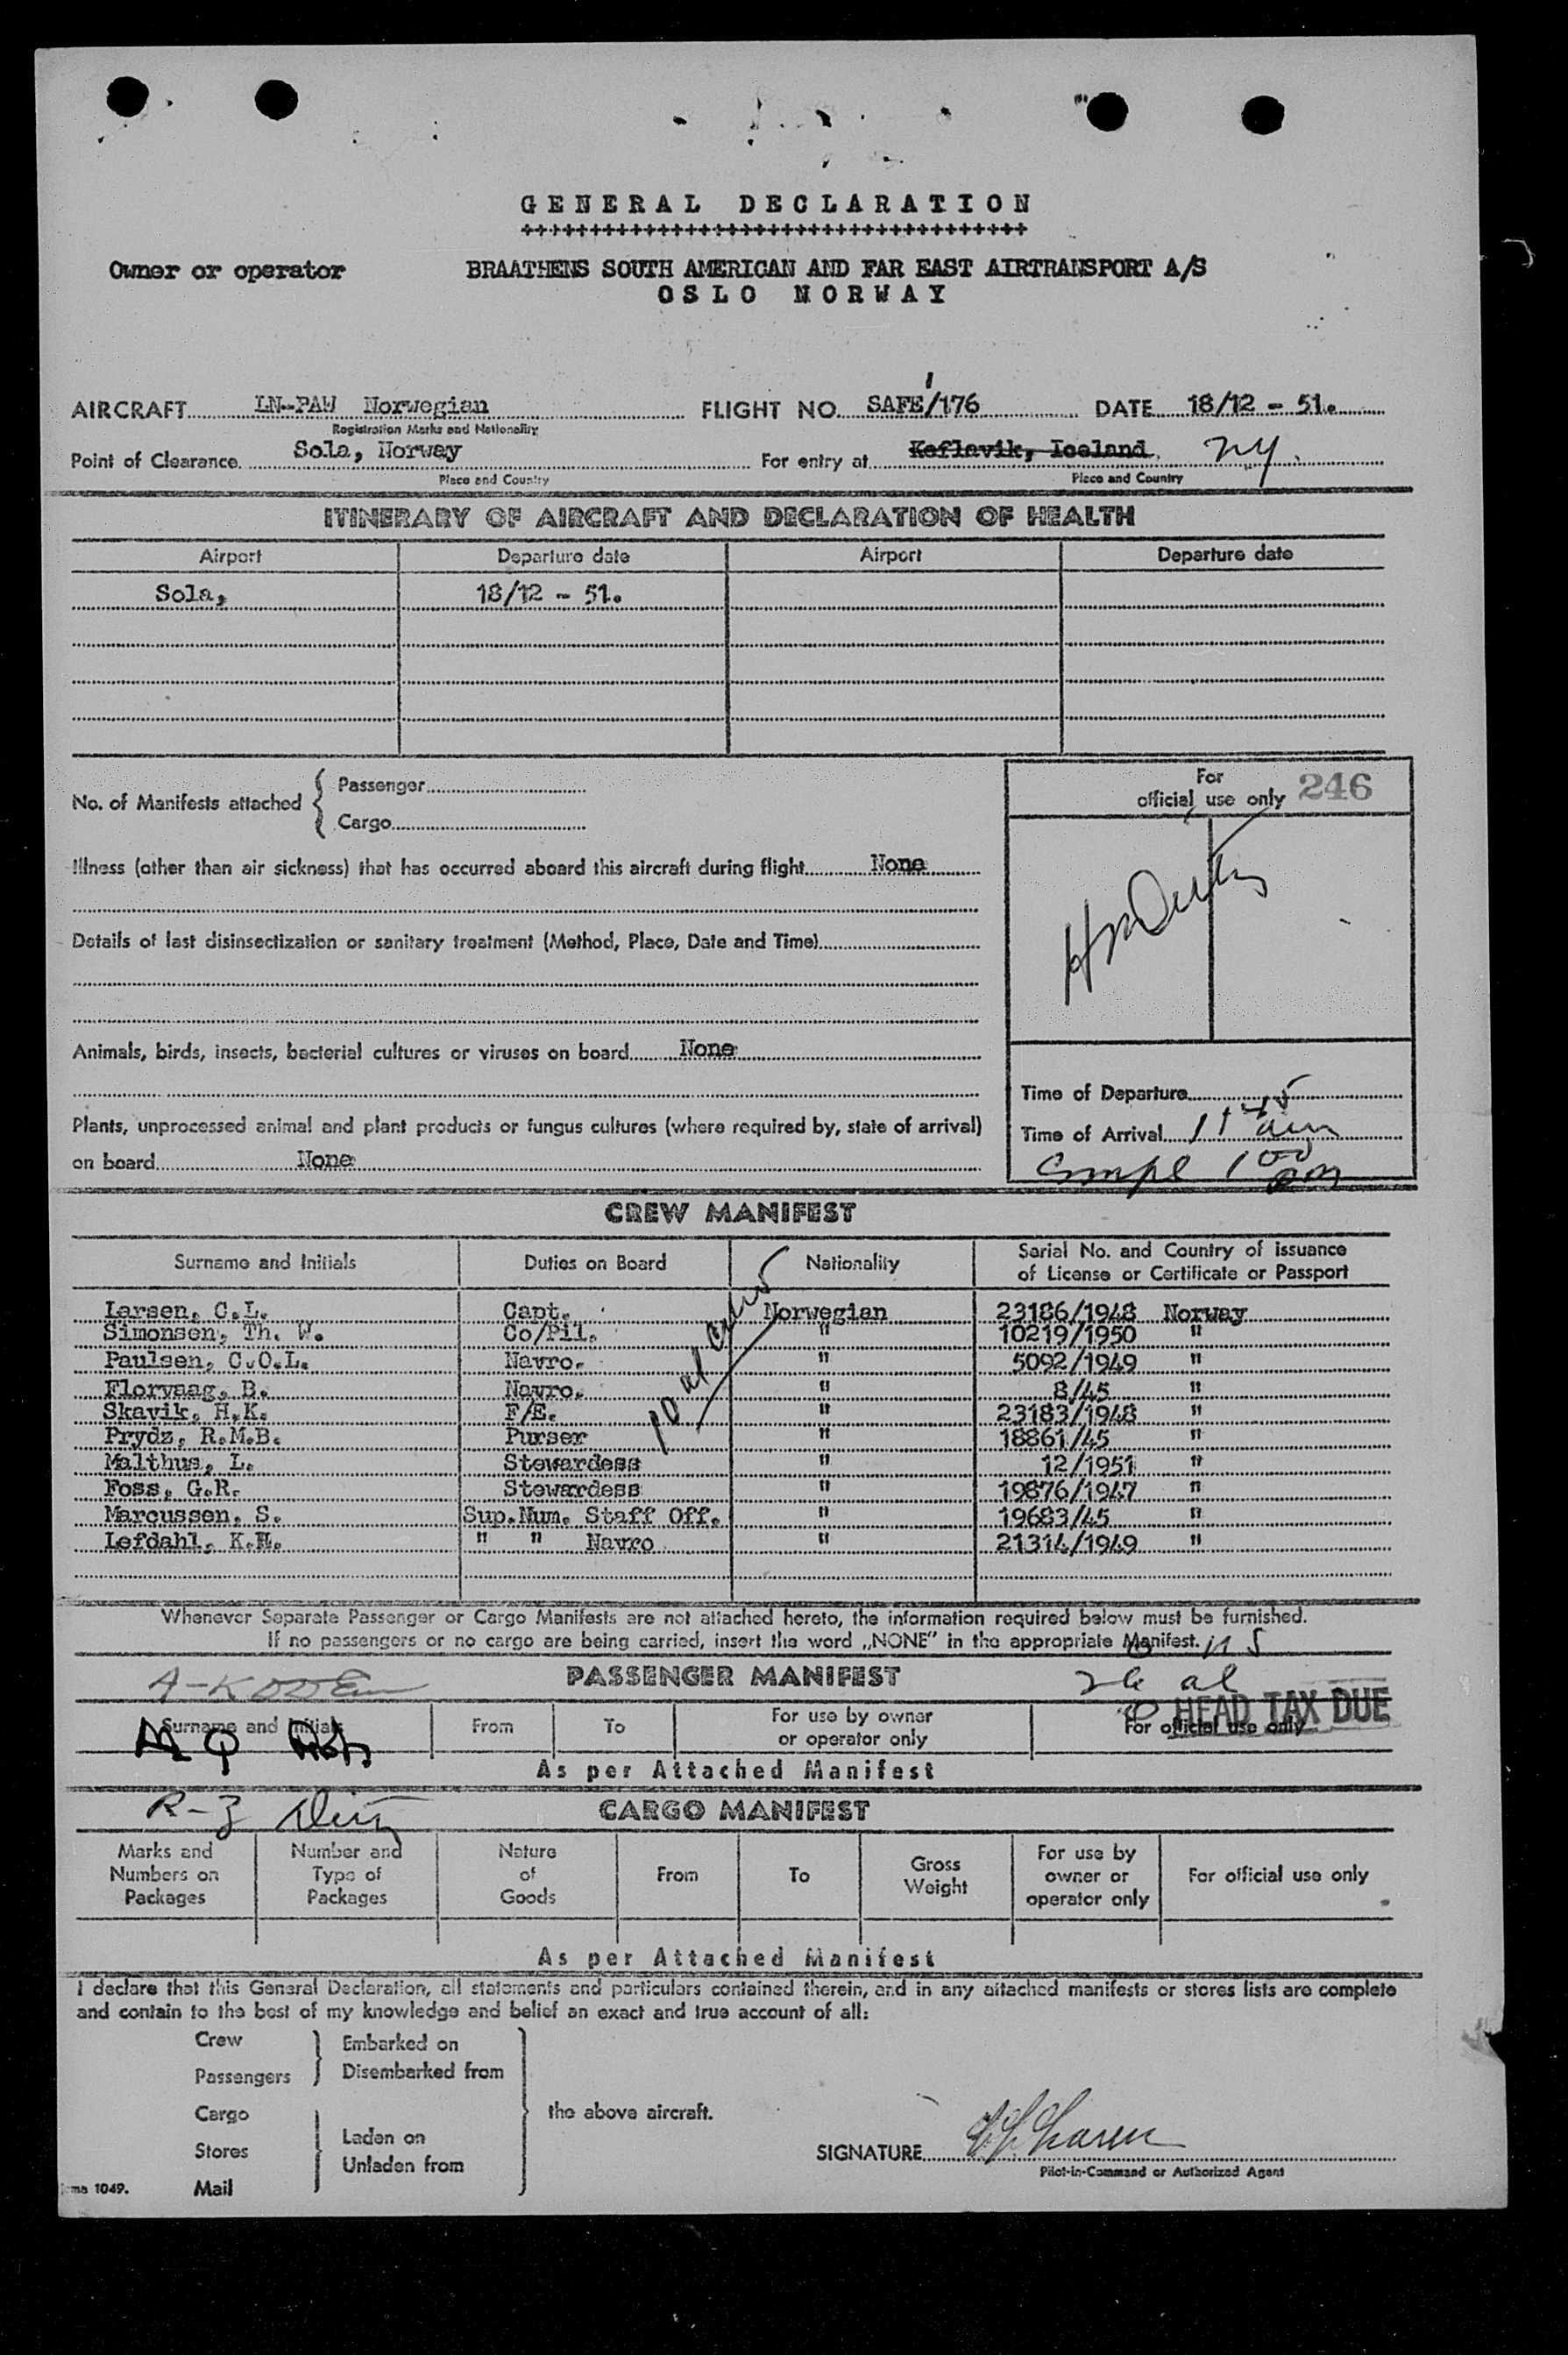 GENERAL DECLARATION
++++++++++++++++++++++++++++++++++++
Owner or operator BRAATHENS SOUTH AMERICAN AND FAR EAST AIRTRANSPORT A/S
OSLO NORWAY
AIRCRAFT LN-PAW Norwegian FLIGHT NO. SAFE/176 DATE 18/12 - 51.
Registration Marks and Nationality
Point of Clearance Sola, Norway For entry at Keflavik, Iceland. NY.
Place and Country Place and Country
ITINERARY OF AIRCRAFT AND DECLARATION OF HEALTH
Airport Departure date Airport Departure date
Sola, 18/12 - 51.
No. of Manifests attached { Passenger
Cargo
For official use only 246
Illness (other than air sickness) that has occurred aboard this aircraft during flight None
Details of last disinsectization or sanitary treatment (Method, Place, Date and Time)
Animals, birds, insects, bacterial cultures or viruses on board None
Time of Departure
Plants, unprocessed animal and plant products or fungus cultures (where required by, state of arrival)
Time of Arrival 11 45 am
on board None
Compl 1 00 pm
CREW MANIFEST
Surname and Initials Duties on Board Nationality Serial No. and Country of issuance of License or Certificate or Passport
Larsen, C.L. Capt. Norwegian 23186/1948 Norway
Simonsen, Th. W. Co/Pil. " 10219/1950 "
Paulsen, C.O.L. Navro. " 5092/1949 "
Florvaag, B. Navro. " 8/45 "
Skavik, H.K. F/E. " 23183/1948 "
Prydz, R.M.B. Purser " 18861/45 "
Malthus, L. Stewardess " 12/1951 "
Foss, G.R. Stewardess " 19876/1947 "
Marcussen, S. Sup.Num. Staff Off. " 19683/45 "
Lefdahl, K.H. " " Navro " 21314/1949 "
10 al
Whenever Separate Passenger or Cargo Manifests are not attached hereto, the information required below must be furnished.
If no passengers or no cargo are being carried, insert the word „NONE" in the appropriate Manifest.
PASSENGER MANIFEST
26 al
HEAD TAX DUE
Surname and Initials From To For use by owner or operator only For official use only
As per Attached Manifest
R-Z
CARGO MANIFEST
Marks and Numbers on Packages Number and Type of Packages Nature of Goods From To Gross Weight For use by owner or operator only For official use only
As per Attached Manifest
I declare that this General Declaration, all statements and particulars contained therein, and in any attached manifests or stores lists are complete
and contain to the best of my knowledge and belief an exact and true account of all:
Crew Embarked on
Passengers Disembarked from
Cargo the above aircraft.
Stores Laden on
Unladen from
SIGNATURE C L Larsen
Pilot-in-Command or Authorized Agent
1049. Mail